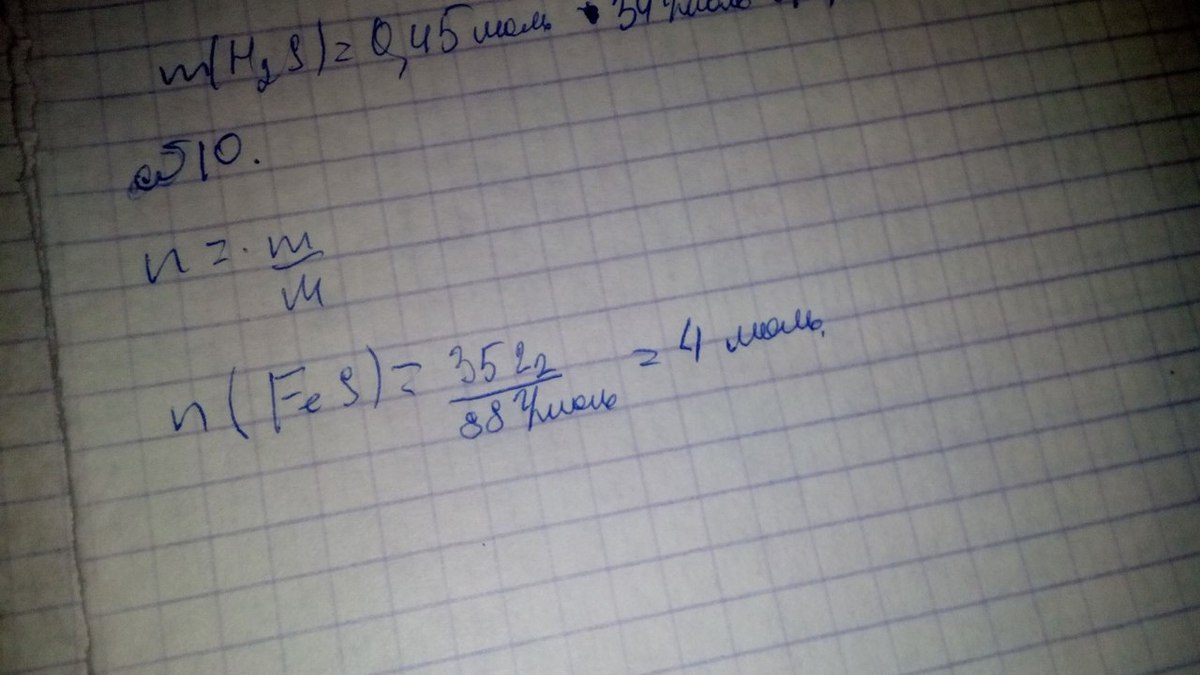 m(H₂S) = 0,45 моль · 34 г/моль
№10.
n = m/M
n(FeS) = 352г/88 г/моль = 4 моль.